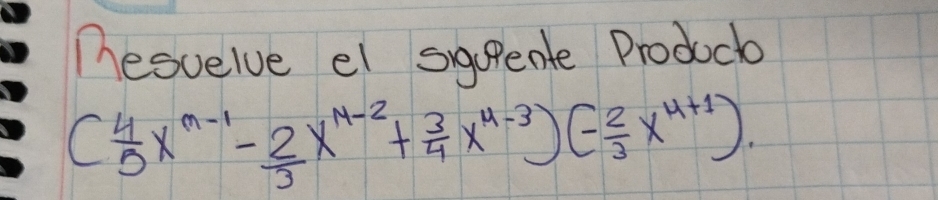 Resuelve el siguiente Producto
(4/5 x^{m-1} - 2/3 x^{m-2} + 3/4 x^{m-3})(-2/3 x^{m+1}).